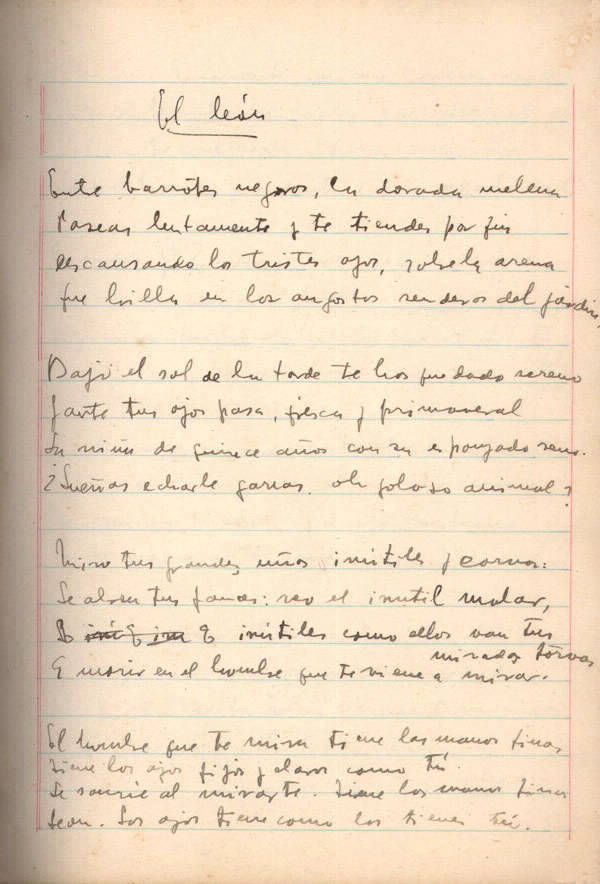 El león
Entre barrotes negros, la dorada melena
Paseas lentamente y te tiendes por fin
descansando los tristes ojos, sobre la arena
que brilla en los angostos senderos del jardín,
Bajo el sol de la tarde te has quedado sereno
y ante tus ojos pasa, fresca y primaveral
la niña de quince años con su esponjado seno.
¿Sueñas echarle garras, oh goloso animal?
Miro tus grandes uñas inútiles y corvas:
Se abren tus fauces: veo el inútil molar,
E inútiles como ellos van tus
miradas torvas
a morir en el hombre que te viene a mirar.
El hombre que te mira tiene las manos finas,
tiene los ojos fijos y claros como tú.
Se sonríe al mirarte. Tiene las manos finas
León. Los ojos tiene como los tienes tú.